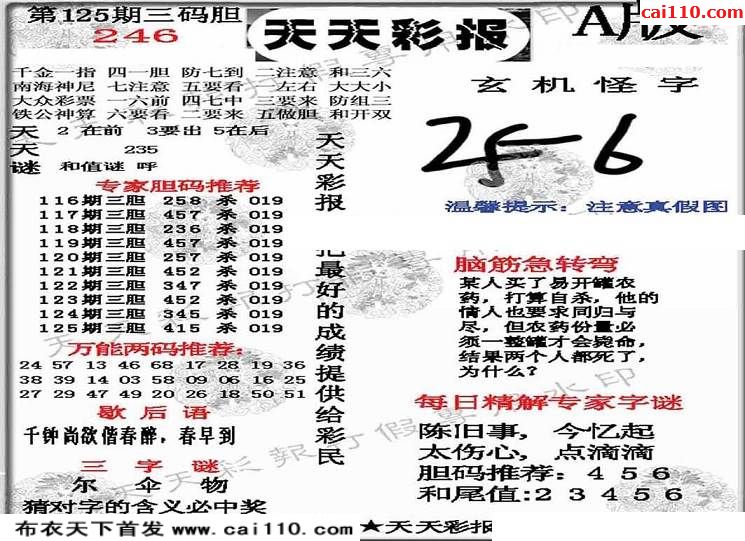 第125期三码胆
246
天天彩报
A版
cai110.com
千金一指 四一胆 防七到 二注意 和三六
南海神尼 七注意 五要看 左右 大大小
大众彩票 一六前 四七中 三要来 防组三
铁公神算 六要看 二要来 五做胆 和开双
天 2 在前 3要出 5在后
天 235
谜 和值谜 呼
专家胆码推荐
116期三胆 258 杀 019
117期三胆 457 杀 019
118期三胆 236 杀 019
119期三胆 457 杀 019
120期三胆 257 杀 019
121期三胆 452 杀 019
122期三胆 347 杀 019
123期三胆 452 杀 019
124期三胆 345 杀 019
125期三胆 415 杀 019
万能两码推荐:
24 57 13 46 68 17 28 19 36
38 39 14 03 58 09 06 16 25
27 29 47 49 20 26 18 50 51
歇后语
千钟尚欲偕春醉，春早到
三字谜
尔 伞 物
猜对字的含义必中奖
天天彩报
把最好的成绩提供给彩民
玄机怪字
256
温馨提示：注意真假图
脑筋急转弯
某人买了易开罐农
药，打算自杀，他的
情人也要求同归与
尽，但农药份量必
须一整罐才会毙命，
结果两个人都死了，
为什么？
每日精解专家字谜
陈旧事，今忆起
太伤心，点滴滴
胆码推荐：4 5 6
和尾值:2 3 4 5 6
布衣天下首发 www.cai110.com
★天天彩报